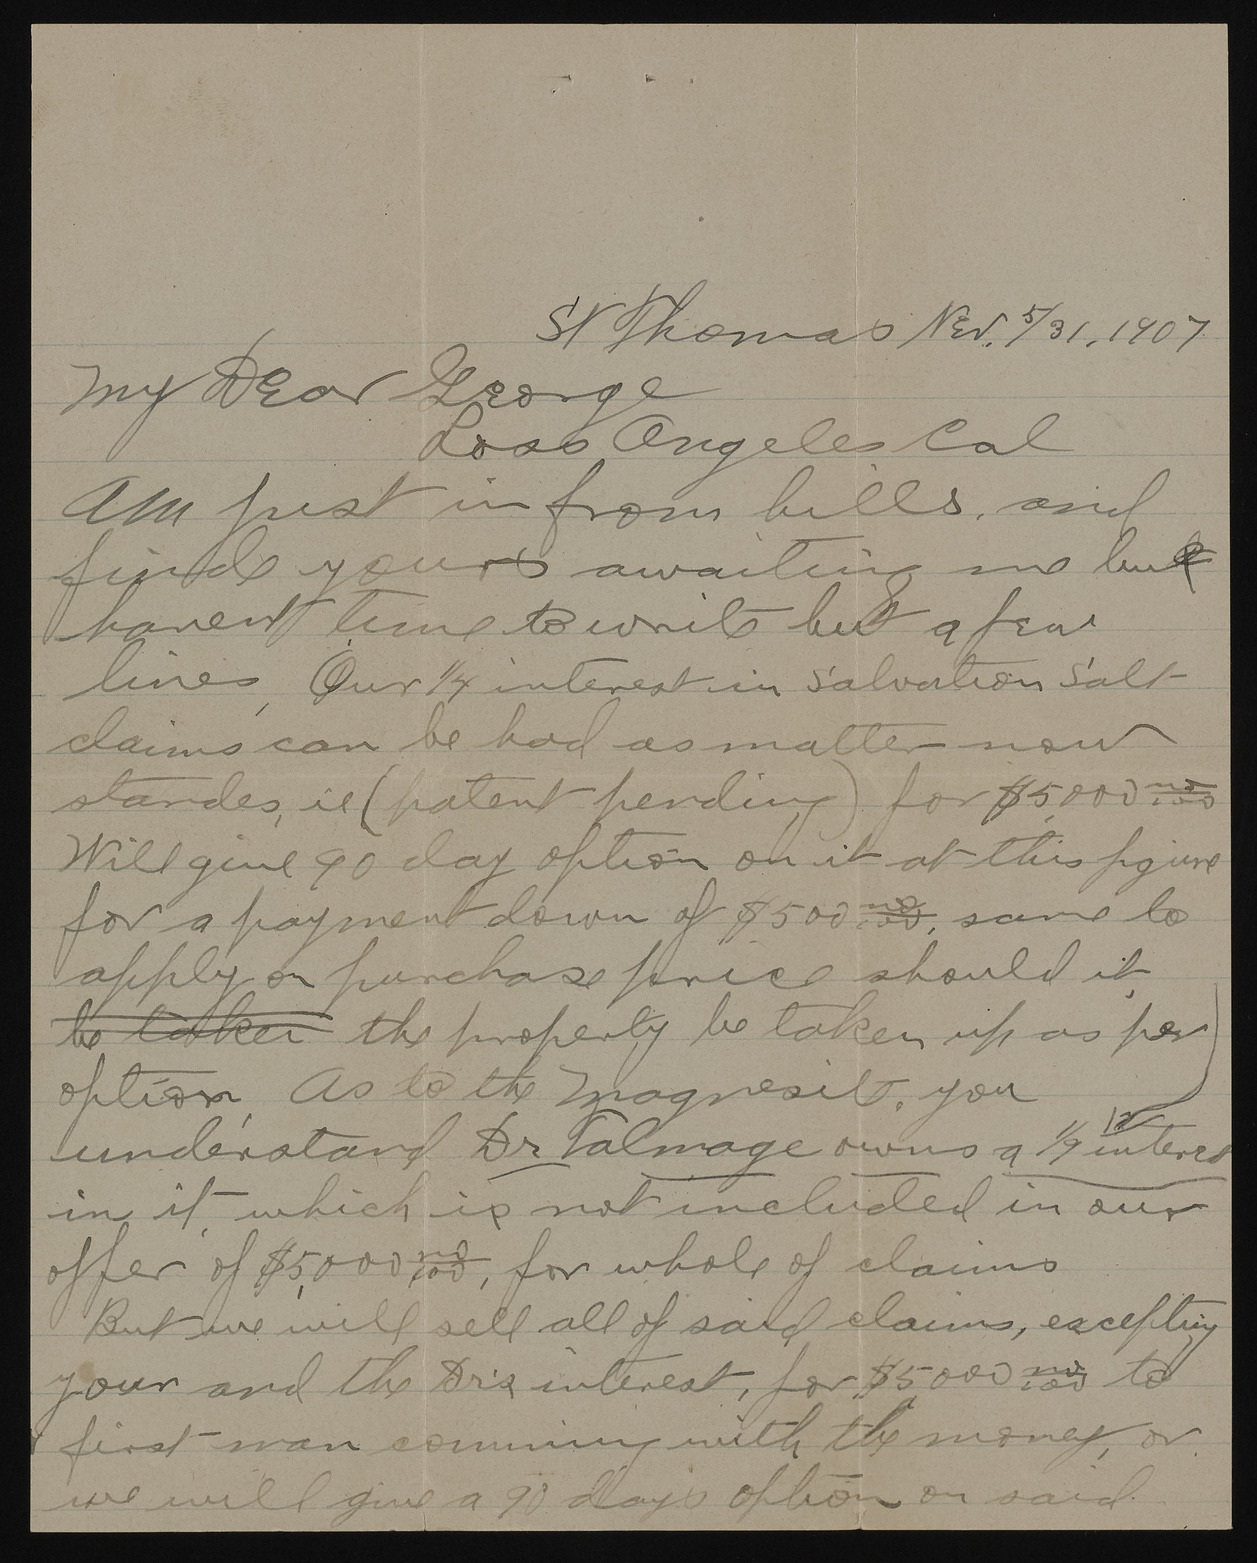 St Thomas Nev. 5/31, 1907
My Dear George
Loss Angeles Cal
Am just in from hills, and
finde yours awaiting me but
havent time to write but a few
lines, Our 1/4 interest in Salvation Salt
claims can be had as matter now
standes, ie (patent pending) for $5,000 no/100
Will give 90 day option on it at this figure
for a payment down of $500 no/100, same to
apply on purchase price should it
be taken the property be taken up as per
option. As to the Magnesite, you
understand Dr Talmage owns a 1/9 interest
in it which is not included in our
offer of $5,000 no/100, for whole of claims
But we will sell all of said claims, excepting
your and the Dr's interest, for $5000 no/100 to
first man comming with the money, or
we will give a 90 days option on said